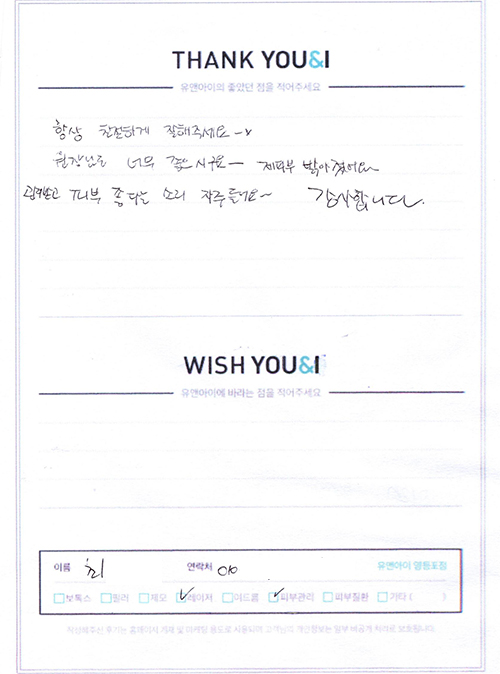 THANK YOU&I
유앤아이의 좋았던 점을 적어주세요
항상 친절하게 잘해주세요~
원장님도 너무 좋으시구요~ 제피부 밝아졌어요~
피부 좋다는 소리 자주들어요~ 감사합니다.
WISH YOU&I
유앤아이에 바라는 점을 적어주세요
이름 최 연락처 010 유앤아이 영등포점
보톡스 필러 제모 레이저 여드름 피부관리 피부질환 기타 ( )
작성해주신 후기는 홈페이지 게재 및 마케팅 용도로 사용되며 고객님의 개인정보는 일부 비공개 처리로 보호됩니다.